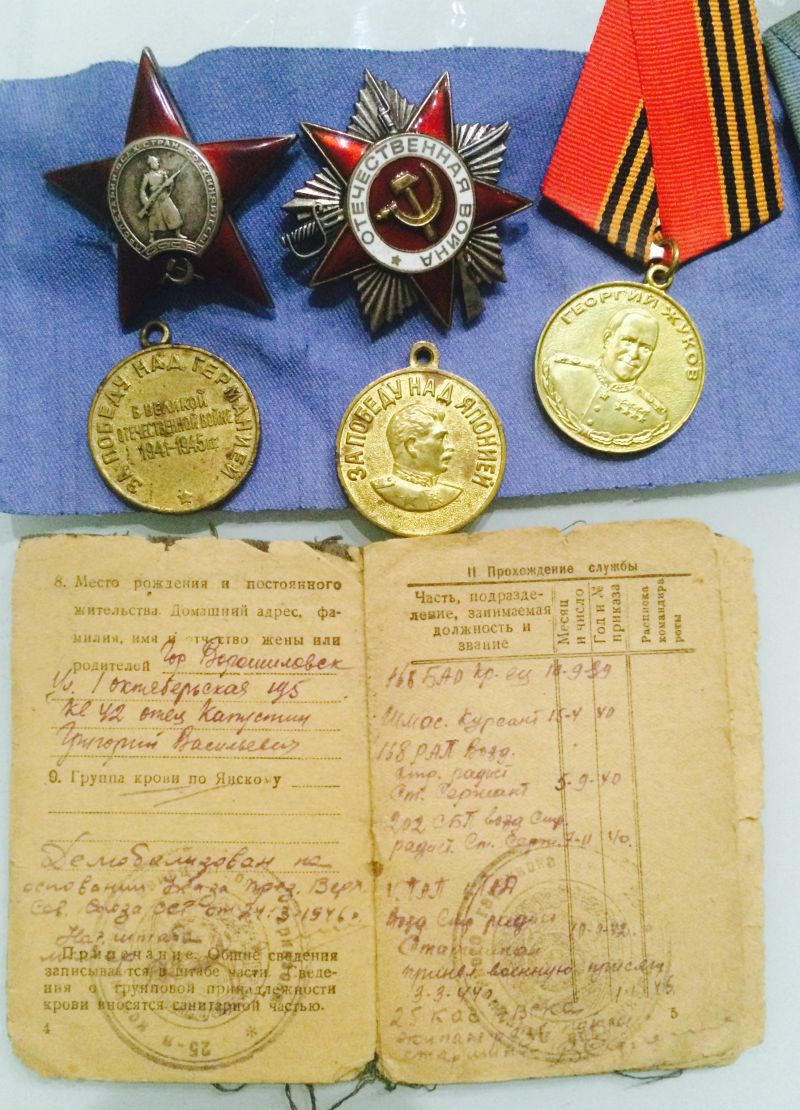 ПРОЛЕТАРИИ ВСЕХ СТРАН СОЕДИНЯЙТЕСЬ
СССР
ОТЕЧЕСТВЕННАЯ ВОЙНА
ГЕОРГИЙ ЖУКОВ
ЗА ПОБЕДУ НАД ГЕРМАНИЕЙ
В ВЕЛИКОЙ
ОТЕЧЕСТВЕННОЙ ВОЙНЕ
1941-1945 гг
ЗА ПОБЕДУ НАД ЯПОНИЕЙ
8. Место рождения и постоянного
жительства. Домашний адрес, фа-
милия, имя и отчество жены или
родителей Гор Ворошиловск
Ул. 1 октябрьская 195
Кв 42 отец Капустин
Григорий Васильевич
9. Группа крови по Янскому
Демобилизован на
основании Указа През. Верх.
Сов. Союза ССР от 24.3-1946 г.
Нач. штаба
Примечание. Общие сведения
записываются в штабе части. Сведе-
ния о групповой принадлежности
крови вносятся санитарной частью.
4
25-я
II Прохождение службы
Часть, подразде-
ление, занимаемая
должность и
звание
Месяц
и число
Год и №
приказа
Расписка
командира
роты
168 БАО кр-ец 10-9-39
Шмас. Курсант 15-4 40
158 РАП Возд.
стр. радист
Ст. Сержант 5-9-40
202 СБП возд Стр.
радист Ст. Серж. 7-11 40.
Возд Стр радист
Старшина
принял военную присягу
3-3-44
25
старшина
5